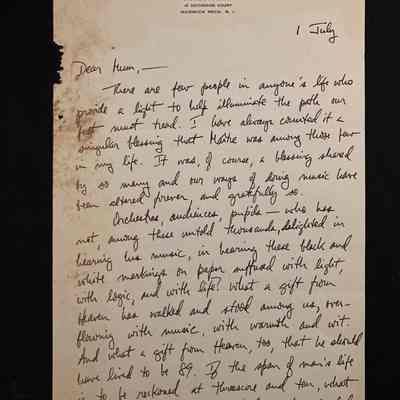 1 July
Dear Mum, —
There are few people in anyone's life who
provide a light to help illuminate the path our
feet must tread. I have always counted it a
singular blessing that Maître was among those few
in my life. It was, of course, a blessing shared
by so many and our ways of doing music have
been altered forever, and gratefully so.
Orchestras, audiences, pupils — who has
not, among these untold thousands, delighted in
hearing his music, in hearing those black and
white markings on paper suffused with light,
with logic, and with life! What a gift from
Heaven has walked and stood among us, over-
flowing with music, with warmth and wit.
And what a gift from Heaven, too, that he should
have lived to be 89. If the span of man's life
is to be reckoned at threescore and ten, what